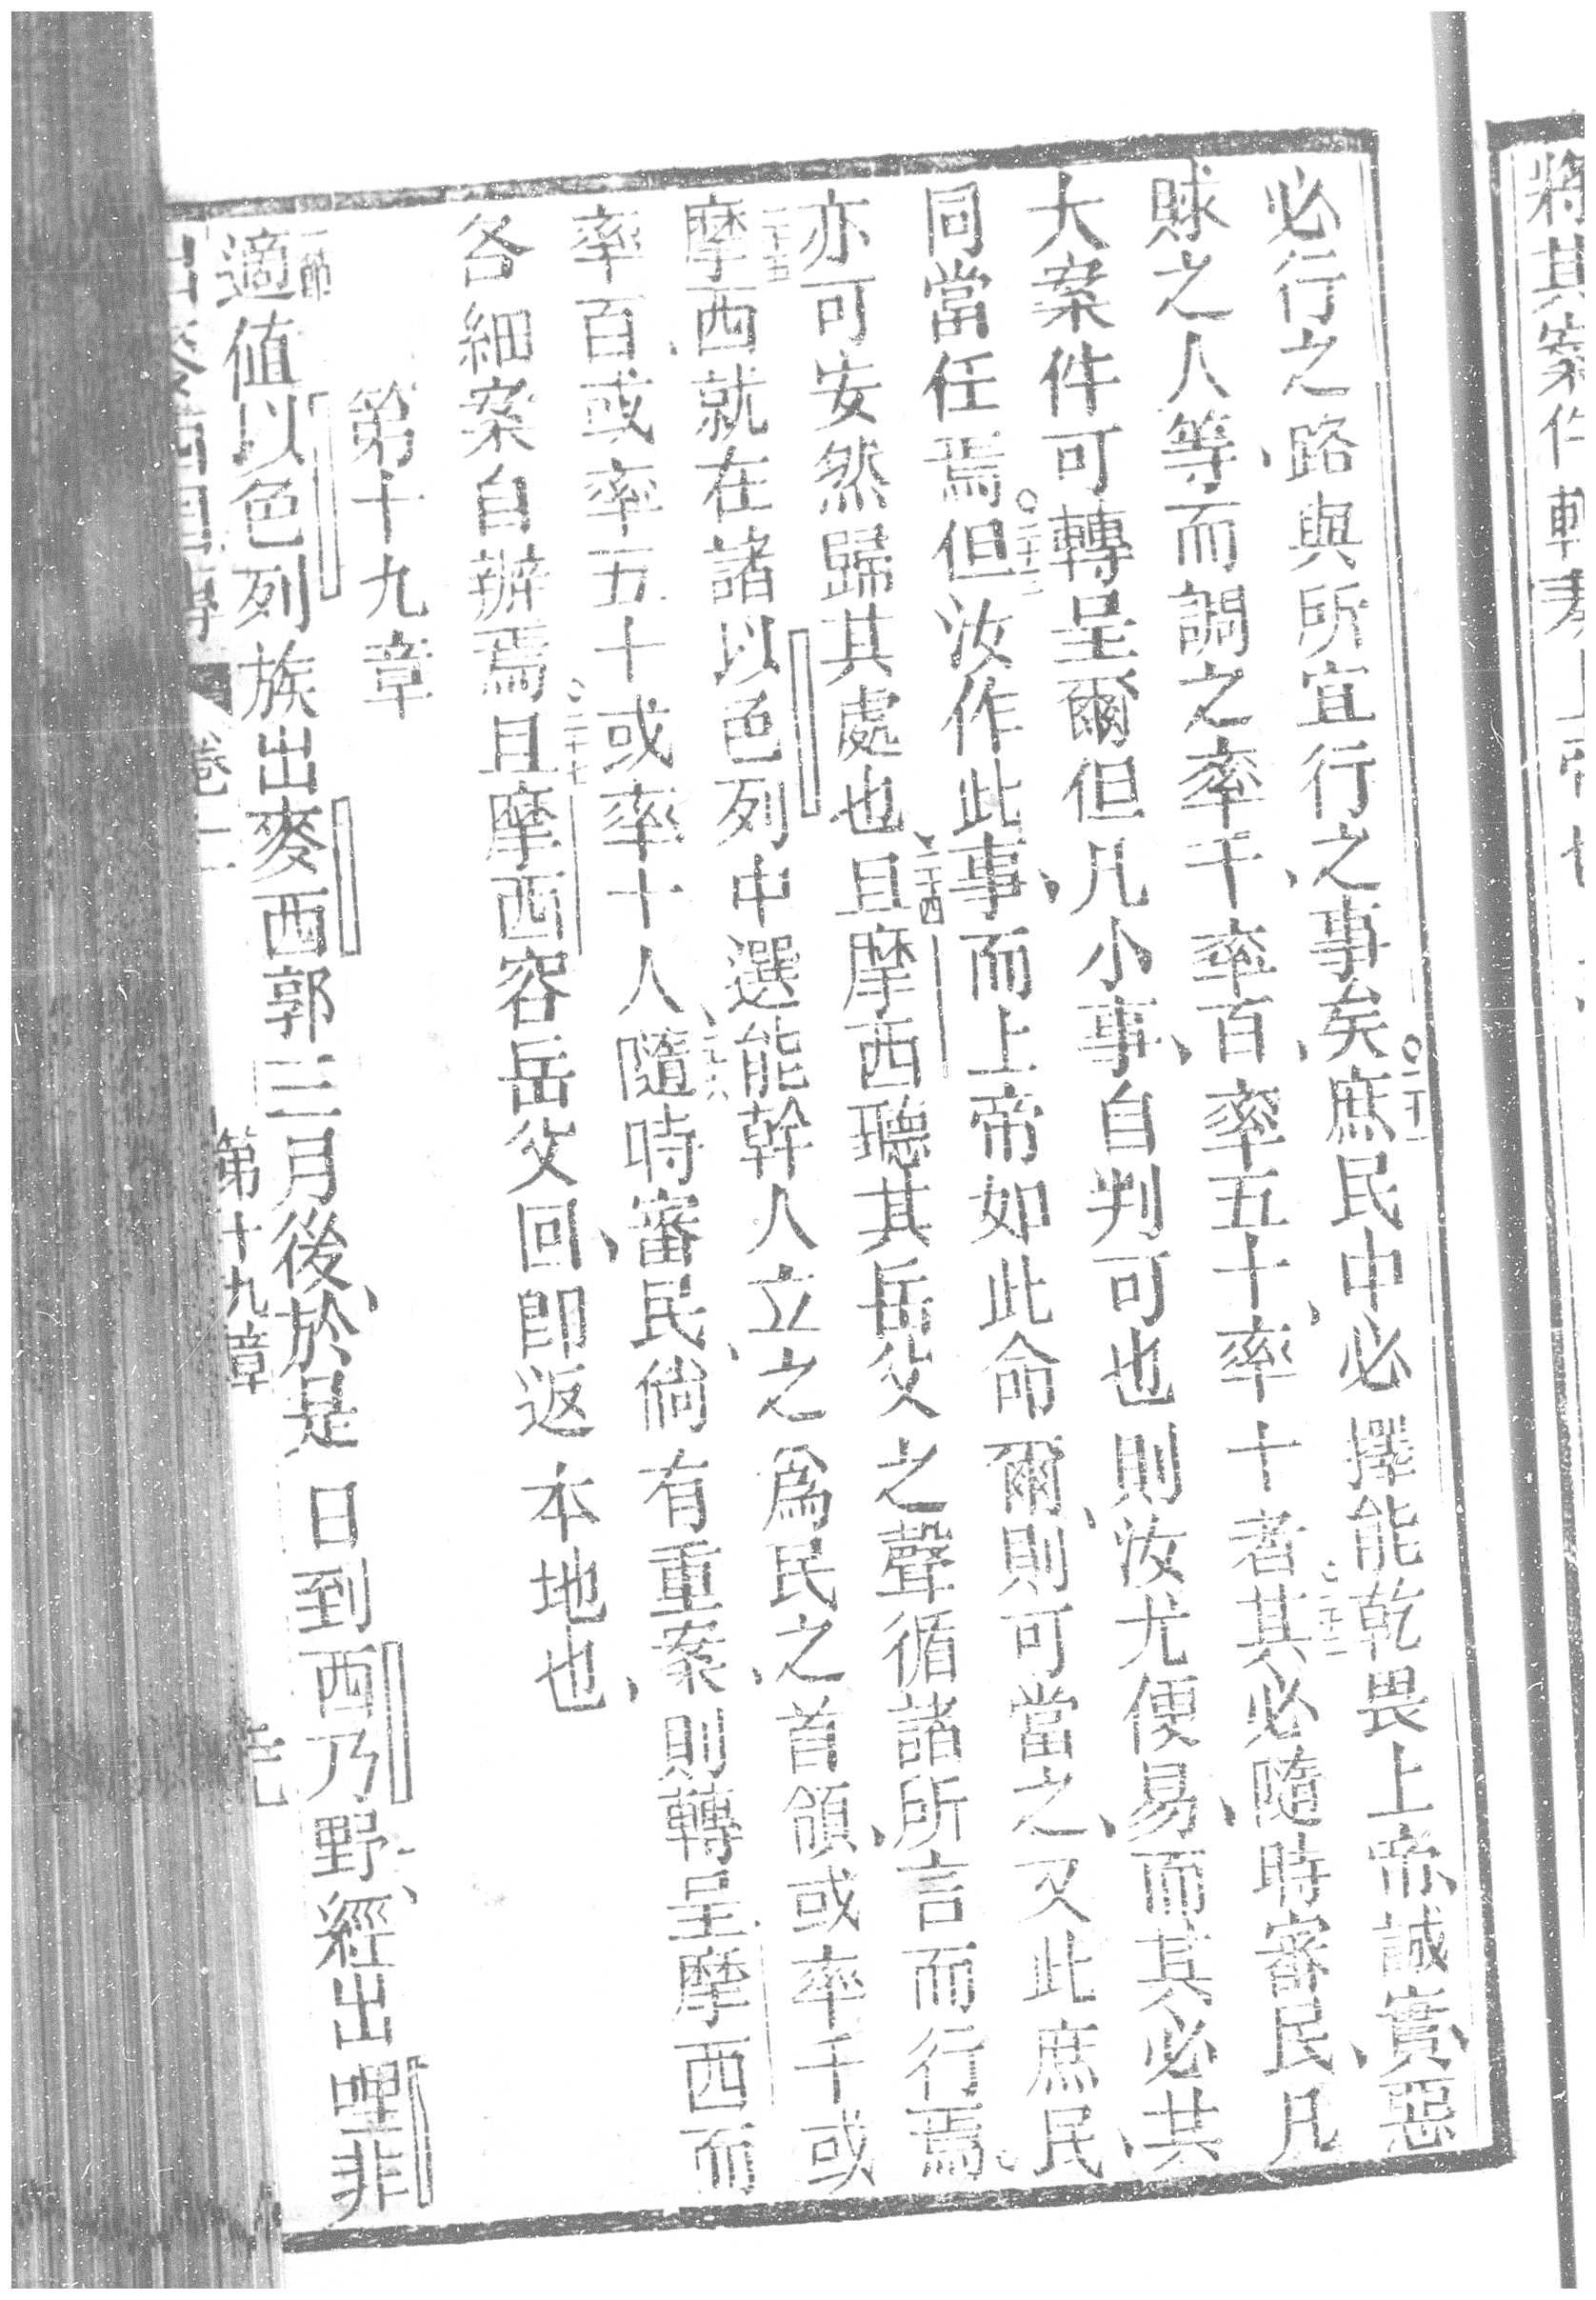 將其案件轉奏上帝也
必行之路與所宜行之事矣○二十一庶民中必擇能乾畏上帝誠實惡
賕之人等而調之率千率百率五十率十者二十二其必隨時審民凡
大案件可轉呈爾但凡小事自判可也則汝尤便易而其必共
同當任焉○二十三但汝作此事而上帝如此命爾則可當之又此庶民
亦可安然歸其處也二十四且摩西聽其岳父之聲循諸所言而行焉
二十五摩西就在諸以色列中選能幹人立之爲民之首領或率千或
率百或率五十或率十人二十六隨時審民倘有重案則轉呈摩西而
各細案自辦焉二十七且摩西容岳父回卽返本地也
第十九章
一節適值以色列族出麥西郭三月後於是日到西乃野二經出哩非
卷二 第十九章